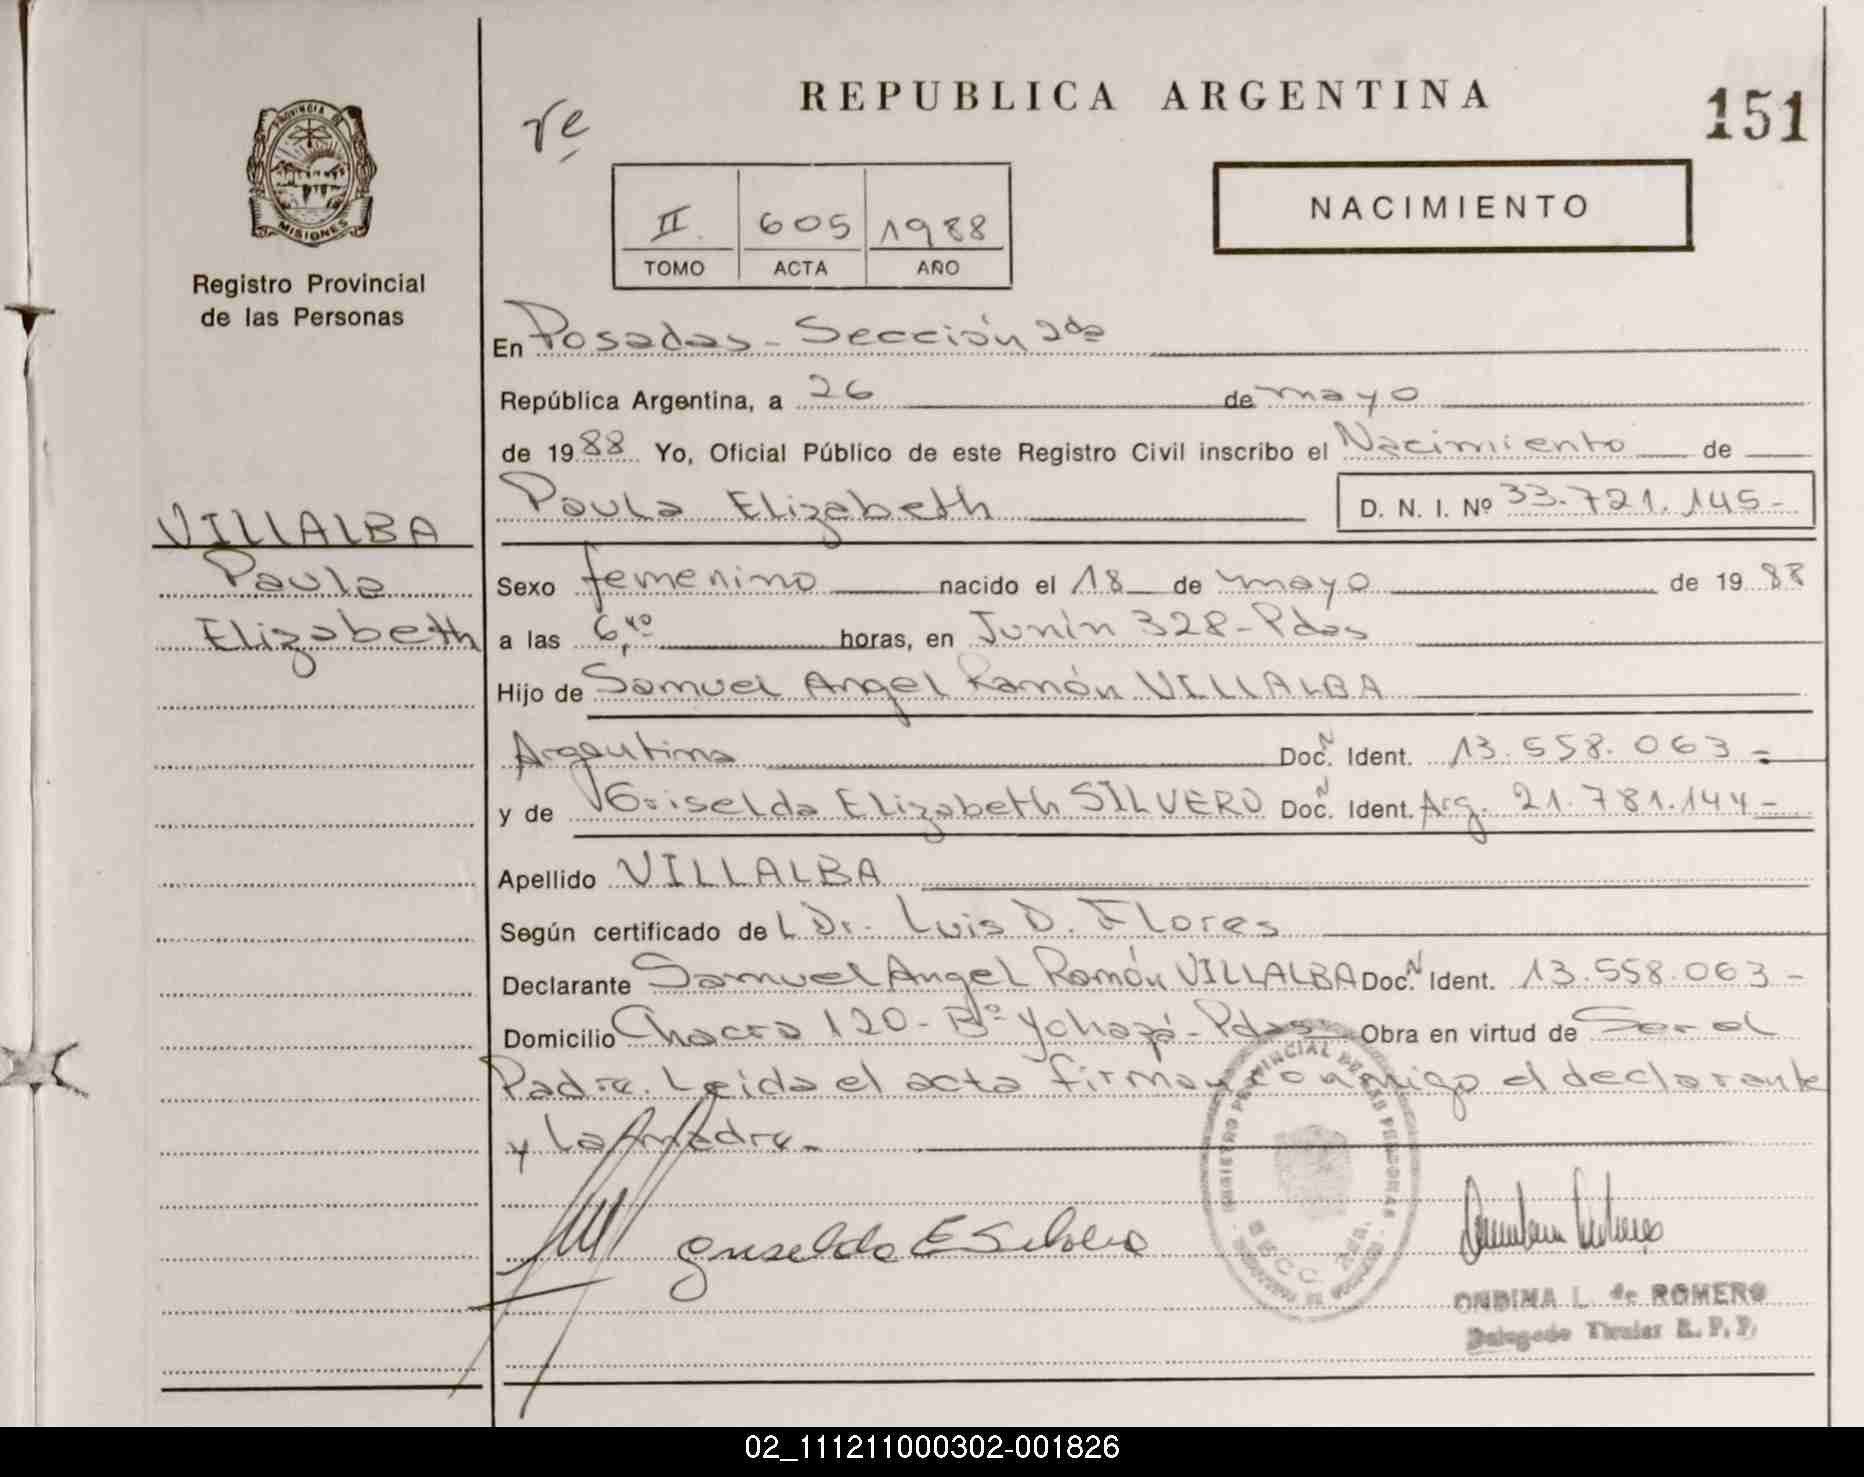 REPUBLICA ARGENTINA
151
PROVINCIA DE
MISIONES
Registro Provincial
de las Personas
II. 605 1988
TOMO ACTA AÑO
NACIMIENTO
En Posadas - Sección 2da
República Argentina, a 26 de mayo
de 1988 Yo, Oficial Público de este Registro Civil inscribo el Nacimiento de
VILLALBA
Paula
Elizabeth
Paula Elizabeth D. N. I. Nº 33.721.145-
Sexo femenino nacido el 18 de mayo de 1988
a las 6,40 horas, en Junín 328-Pdas
Hijo de Samuel Angel Ramón VILLALBA
Argentina Doc. N Ident. 13.558.063-
y de Griselda Elizabeth SILVERO Doc. N Ident. Arg. 21.781.144-
Apellido VILLALBA
Según certificado de L Dr. Luis D. Flores
Declarante Samuel Angel Ramón VILLALBA Doc. N Ident. 13.558.063-
Domicilio Chacra 120- Bº Yohasá-Pdas Obra en virtud de Ser el
Padre. Leida el acta firman conmigo el declarante
y la madre.
Griselda E Silvero
ONDINA L. de ROMERO
Delegado Titular R. P. P.
02_111211000302-001826